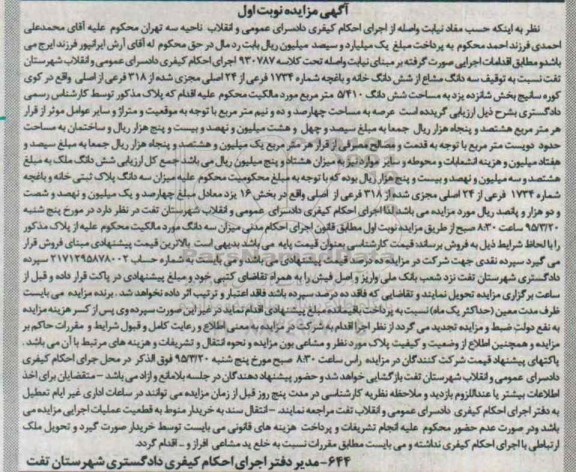 آگهی مزایده نوبت اول
نظر به اینکه حسب مفاد نیابت واصله از اجرای احکام کیفری دادسرای عمومی و انقلاب ناحیه سه تهران محکوم علیه آقای محمدعلی
احمدی فرزند احمد محکوم به پرداخت مبلغ یک میلیارد و سیصد میلیون ریال بابت رد مال در حق محکوم له آقای آرش ایرانپور فرزند ایرج می
باشد و مطابق اقدامات اجرایی صورت گرفته بر مبنای نیابت واصله تحت کلاسه ۹۳۰۷۸۷ اجرای احکام کیفری دادسرای عمومی و انقلاب شهرستان
تفت نسبت به توقیف سه دانگ مشاع از شش دانگ خانه و باغچه شماره ۱۷۳۴ فرعی از ۲۴ اصلی مجزی شده از ۳۱۸ فرعی از اصلی واقع در کوی
کوره سانیج بخش شانزده یزد به مساحت شش دانگ ۵/۴۱۰ متر مربع مورد مالکیت محکوم علیه اقدام که پلاک مذکور توسط کارشناس رسمی
دادگستری بشرح ذیل ارزیابی گردیده است عرصه به مساحت چهارصد و ده و نیم متر مربع با توجه به موقعیت و متراژ و سایر عوامل موثر از قرار
هر متر مربع هشتصد و پنجاه هزار ریال جمعا به مبلغ سیصد و چهل و هشت میلیون و نهصد و بیست و پنج هزار ریال و ساختمان به مساحت
حدود دویست متر مربع با توجه به قدمت و مصالح مصرفی از قرار هر متر مربع یک میلیون و هشتصد و پنجاه هزار ریال جمعا به مبلغ سیصد و
هفتاد میلیون و هزینه انشعابات و محوطه و سایر موارد نیز به میزان هشتاد و پنج میلیون ریال می باشد جمع کل ارزیابی شش دانگ ملک به مبلغ
هشتصد و سه میلیون و نهصد و بیست و پنج هزار ریال بوده که با توجه به مبلغ محکومیت محکوم علیه میزان سه دانگ پلاک ثبتی خانه و باغچه
شماره ۱۷۳۴ فرعی از ۲۴ اصلی مجزی شده از ۳۱۸ فرعی از اصلی واقع در بخش ۱۶ یزد معادل مبلغ چهارصد و یک میلیون و نهصد و شصت
و دو هزار و پانصد ریال مورد مزایده می باشد لذا اجرای احکام کیفری دادسرای عمومی و انقلاب شهرستان تفت در نظر دارد در مورخ پنج شنبه
۹۵/۳/۲۰ ساعت ۸:۳۰ صبح از طریق مزایده نوبت اول مطابق قانون اجرای احکام مدنی میزان سه دانگ مورد مالکیت محکوم علیه از پلاک مذکور
را با لحاظ شرایط ذیل به فروش برساند؛ قیمت کارشناسی بعنوان قیمت پایه می باشد بدیهی است بالاترین قیمت پیشنهادی مبنای فروش قرار
می گیرد سپرده نقدی جهت شرکت در مزایده ده درصد قیمت پیشنهادی می باشد و می بایست به شماره حساب ۲۱۷۱۲۹۵۸۷۸۰۰۲ سپرده
دادگستری شهرستان تفت نزد شعب بانک ملی واریز و اصل فیش را به همراه تقاضای کتبی خود و مبلغ پیشنهادی در پاکت قرار داده و قبل از
ساعت برگزاری مزایده تحویل نمایند و تقاضایی که فاقد ده درصد سپرده باشد فاقد اعتبار و ترتیب اثر داده نخواهد شد. برنده مزایده می بایست
ظرف مدت معین (حداکثر یک ماه) نسبت به پرداخت باقیمانده مبلغ پیشنهادی اقدام نماید در غیر این صورت سپرده وی پس از کسر هزینه مزایده
به نفع دولت ضبط و مزایده تجدید می گردد از نظر اجرا اقدام به شرکت در مزایده به معنی اطلاع و رعایت کامل و قبول شرایط و مقررات حاکم بر
مزایده و همچنین اطلاع از وضعیت و کیفیت پلاک مورد نظر و مشاعی بودن مزایده و نحوه انتقال و تشریفات و هزینه های مرتبط با آن می باشد.
پاکتهای پیشنهاد قیمت شرکت کنندگان در مزایده راس ساعت ۸:۳۰ صبح مورخ پنج شنبه ۹۵/۳/۲۰ فوق الذکر در محل اجرای احکام کیفری
دادسرای عمومی و انقلاب شهرستان تفت بازگشایی خواهد شد و حضور پیشنهاد دهندگان در جلسه بلامانع و ازاد می باشد - متقاضیان برای اخذ
اطلاعات بیشتر یا عنداللزوم بازدید و ملاحظه نظریه کارشناسی در مدت پنج روز قبل از زمان مزایده می توانند در ساعات اداری غیر ایام تعطیل
به دفتر اجرای احکام کیفری دادسرای عمومی و انقلاب تفت مراجعه نمایند - انتقال سند به خریدار منوط به قطعیت عملیات اجرایی مزایده می
باشد و در صورت عدم حضور محکوم علیه انجام تشریفات و پرداخت هزینه های قانونی می بایست توسط خریدار صورت گیرد و تحویل ملک
ارتباطی با اجرای احکام کیفری نداشته و می بایست مطابق مقررات نسبت به خلع ید مشاعی افراز و .. اقدام گردد.
۶۴۴- مدیر دفتر اجرای احکام کیفری دادگستری شهرستان تفت